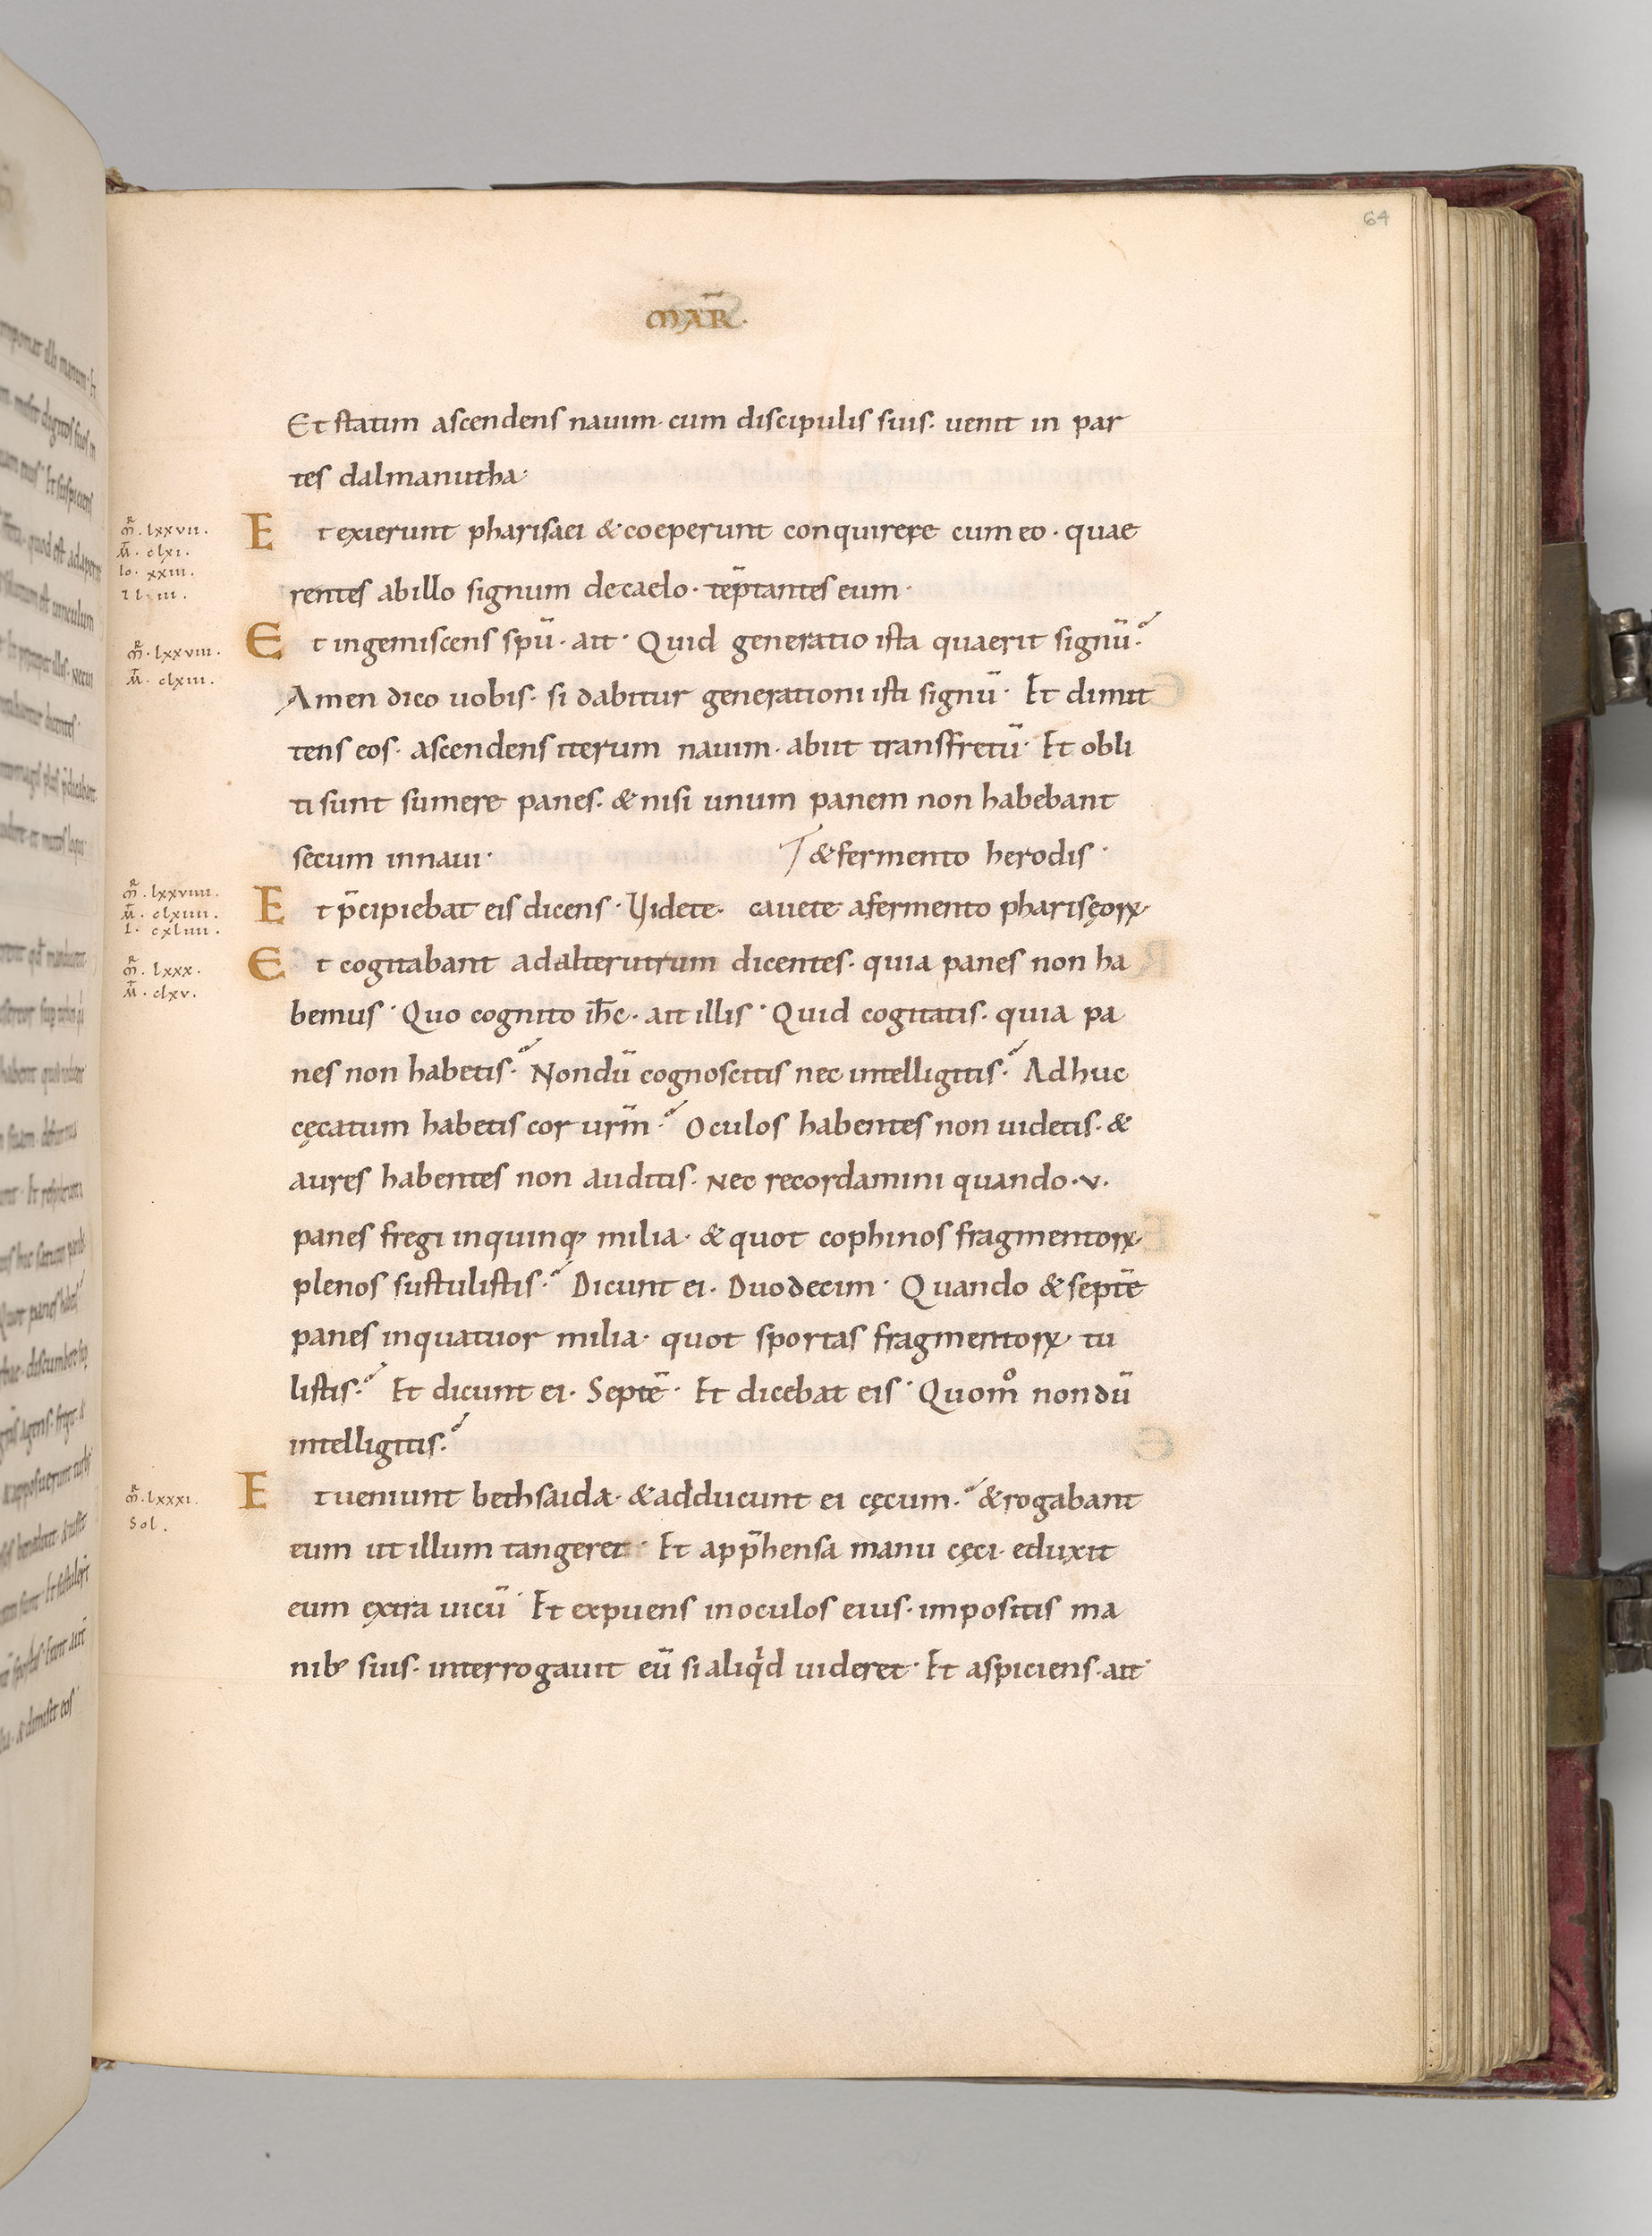 64
MAR̄.
Et statim ascendens nauim. cum discipulis suis. uenit in par
tes dalmanutha.
m̄R. lxxvii.
m̄. clxi.
Io. xxiii.
Et exierunt pharisaei & coeperunt conquirere cum eo. quae
rentes ab illo signum de caelo. tēptantes eum.
m̄R. lxxviii.
m̄. clxiii.
Et ingemiscens spū. ait. Quid generatio ista quaerit signū.
Amen dico uobis. si dabitur generationi isti signū. Et dimit
tens eos. ascendens iterum nauim. abiit transfretū. Et obli
ti sunt sumere panes. & nisi unum panem non habebant
secum in naui.
& fermento herodis.
m̄R. lxxviiii.
m̄. clxiiii.
l. cxliiii.
Et p̄cipiebat eis dicens. Uidete. cauete a fermento pharisęoꝝ.
m̄R. lxxx.
m̄. clxv.
Et cogitabant ad alterutrum dicentes. quia panes non ha
bemus. Quo cognito ih̄c. ait illis. Quid cogitatis. quia pa
nes non habetis. Nondū cognoscitis nec intelligitis. Adhuc
cęcatum habetis cor urm̄. Oculos habentes non uidetis. &
aures habentes non auditis. Nec recordamini quando .v.
panes fregi in quinq; milia. & quot cophinos fragmentoꝝ
plenos sustulistis. Dicunt ei. Duodecim. Quando & septē
panes in quatuor milia. quot sportas fragmentoꝝ tu
listis. Et dicunt ei. Septē. Et dicebat eis. Quom̊ nondū
intelligitis.
m̄R. lxxxi.
Sol.
Et ueniunt bethsaida. & adducunt ei cęcum. & rogabant
eum ut illum tangeret. Et app̄hensa manu cęci. eduxit
eum extra uicū. Et expuens in oculos eius. impositis ma
nib; suis. interrogauit eū si aliqͥd uideret. Et aspiciens. ait.